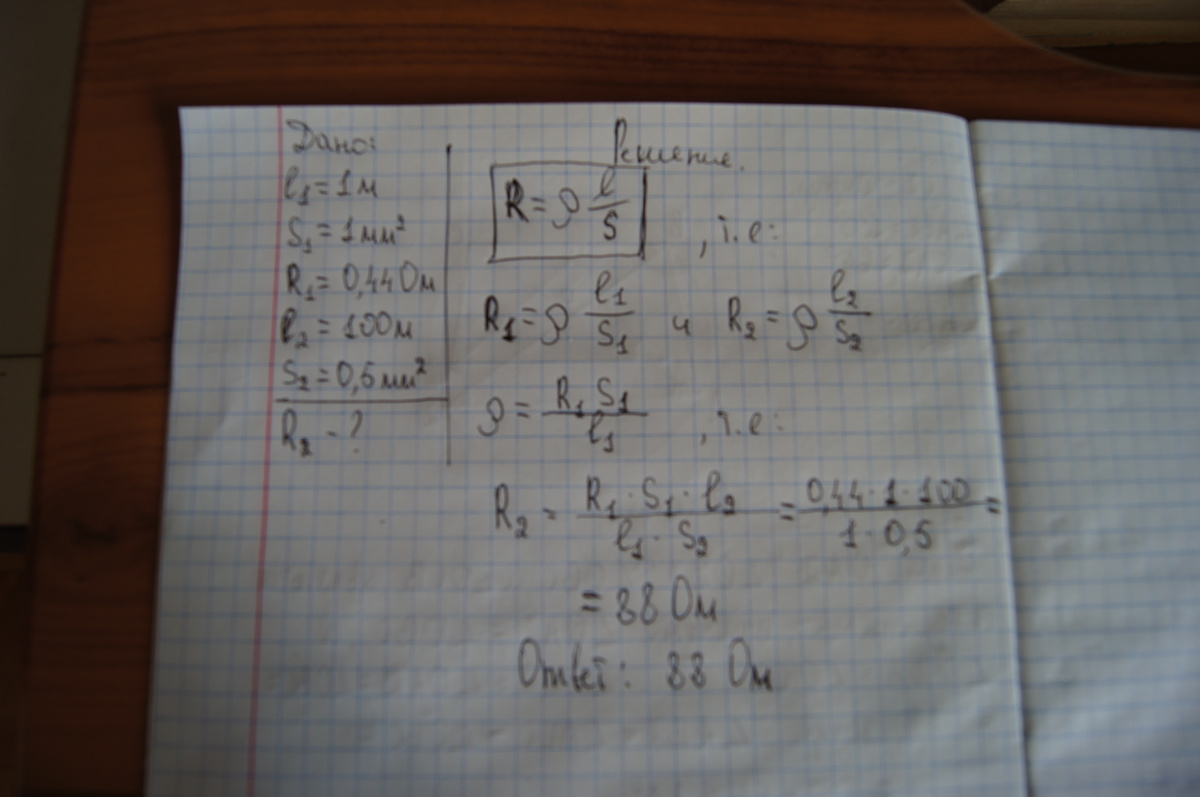 Дано:
l₁ = 1 м
S₁ = 1 мм²
R₁ = 0,44 Ом
l₂ = 100 м
S₂ = 0,5 мм²
R₂ - ?
Решение.
R = ρ l/S , т.е:
R₁ = ρ l₁/S₁ и R₂ = ρ l₂/S₂
ρ = R₁ S₁/l₁ , т.е:
R₂ = R₁ · S₁ · l₂/l₁ · S₂ = 0,44 · 1 · 100/1 · 0,5 =
= 88 Ом
Ответ: 88 Ом